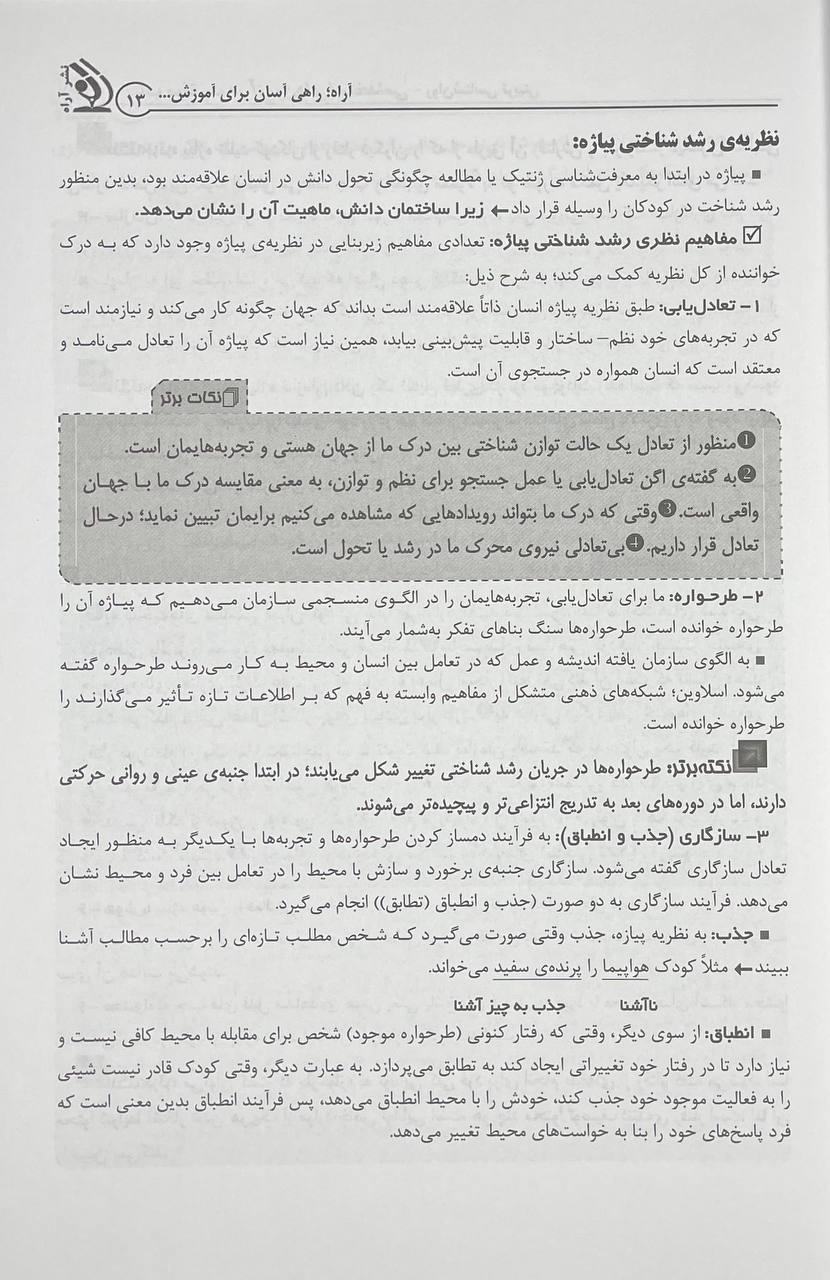 نشر آراه
۱۳
آراه؛ راهی آسان برای آموزش...
نظریه‌ی رشد شناختی پیاژه:
■ پیاژه در ابتدا به معرفت‌شناسی ژنتیک یا مطالعه چگونگی تحول دانش در انسان علاقه‌مند بود، بدین منظور
رشد شناخت در کودکان را وسیله قرار داد← زیرا ساختمان دانش، ماهیت آن را نشان می‌دهد.
☑ مفاهیم نظری رشد شناختی پیاژه: تعدادی مفاهیم زیربنایی در نظریه‌ی پیاژه وجود دارد که به درک
خواننده از کل نظریه کمک می‌کند؛ به شرح ذیل:
۱- تعادل‌یابی: طبق نظریه پیاژه انسان ذاتاً علاقه‌مند است بداند که جهان چگونه کار می‌کند و نیازمند است
که در تجربه‌های خود نظم- ساختار و قابلیت پیش‌بینی بیابد، همین نیاز است که پیاژه آن را تعادل می‌نامد و
معتقد است که انسان همواره در جستجوی آن است.
نکات برتر
❶منظور از تعادل یک حالت توازن شناختی بین درک ما از جهان هستی و تجربه‌هایمان است.
❷به گفته‌ی اگن تعادل‌یابی یا عمل جستجو برای نظم و توازن، به معنی مقایسه درک ما با جهان
واقعی است. ❸وقتی که درک ما بتواند رویدادهایی که مشاهده می‌کنیم برایمان تبیین نماید؛ درحال
تعادل قرار داریم. ❹بی‌تعادلی نیروی محرک ما در رشد یا تحول است.
۲- طرحواره: ما برای تعادل‌یابی، تجربه‌هایمان را در الگوی منسجمی سازمان می‌دهیم که پیاژه آن را
طرحواره خوانده است، طرحواره‌ها سنگ بناهای تفکر به‌شمار می‌آیند.
■ به الگوی سازمان یافته اندیشه و عمل که در تعامل بین انسان و محیط به کار می‌روند طرحواره گفته
می‌شود. اسلاوین؛ شبکه‌های ذهنی متشکل از مفاهیم وابسته به فهم که بر اطلاعات تازه تأثیر می‌گذارند را
طرحواره خوانده است.
نکته‌برتر: طرحواره‌ها در جریان رشد شناختی تغییر شکل می‌یابند؛ در ابتدا جنبه‌ی عینی و روانی حرکتی
دارند، اما در دوره‌های بعد به تدریج انتزاعی‌تر و پیچیده‌تر می‌شوند.
۳- سازگاری (جذب و انطباق): به فرآیند دمساز کردن طرحواره‌ها و تجربه‌ها با یکدیگر به منظور ایجاد
تعادل سازگاری گفته می‌شود. سازگاری جنبه‌ی برخورد و سازش با محیط را در تعامل بین فرد و محیط نشان
می‌دهد. فرآیند سازگاری به دو صورت (جذب و انطباق (تطابق)) انجام می‌گیرد.
■ جذب: به نظریه پیازه، جذب وقتی صورت می‌گیرد که شخص مطلب تازه‌ای را برحسب مطالب آشنا
ببیند← مثلاً کودک هواپیما را پرنده‌ی سفید می‌خواند.
ناآشنا جذب به چیز آشنا
■ انطباق: از سوی دیگر، وقتی که رفتار کنونی (طرحواره موجود) شخص برای مقابله با محیط کافی نیست و
نیاز دارد تا در رفتار خود تغییراتی ایجاد کند به تطابق می‌پردازد. به عبارت دیگر، وقتی کودک قادر نیست شیئی
را به فعالیت موجود خود جذب کند، خودش را با محیط انطباق می‌دهد، پس فرآیند انطباق بدین معنی است که
فرد پاسخ‌های خود را بنا به خواست‌های محیط تغییر می‌دهد.